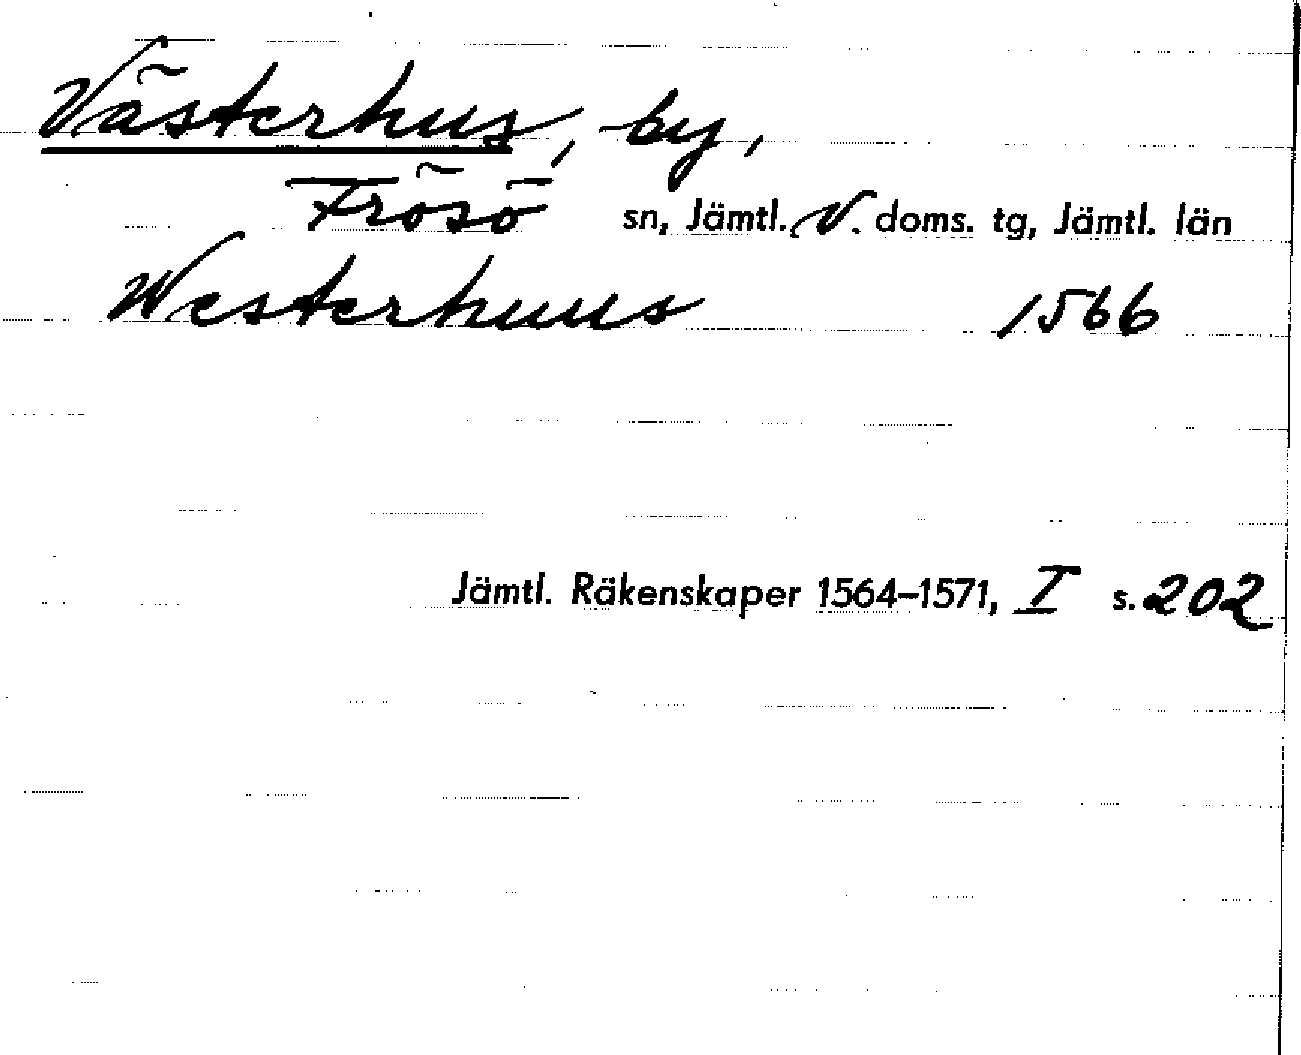 Västerhus, by,
Frösö sn, Jämtl. V. doms. tg, Jämtl. län
Westerhuus 1566
Jämtl. Räkenskaper 1564–1571, I s. 202